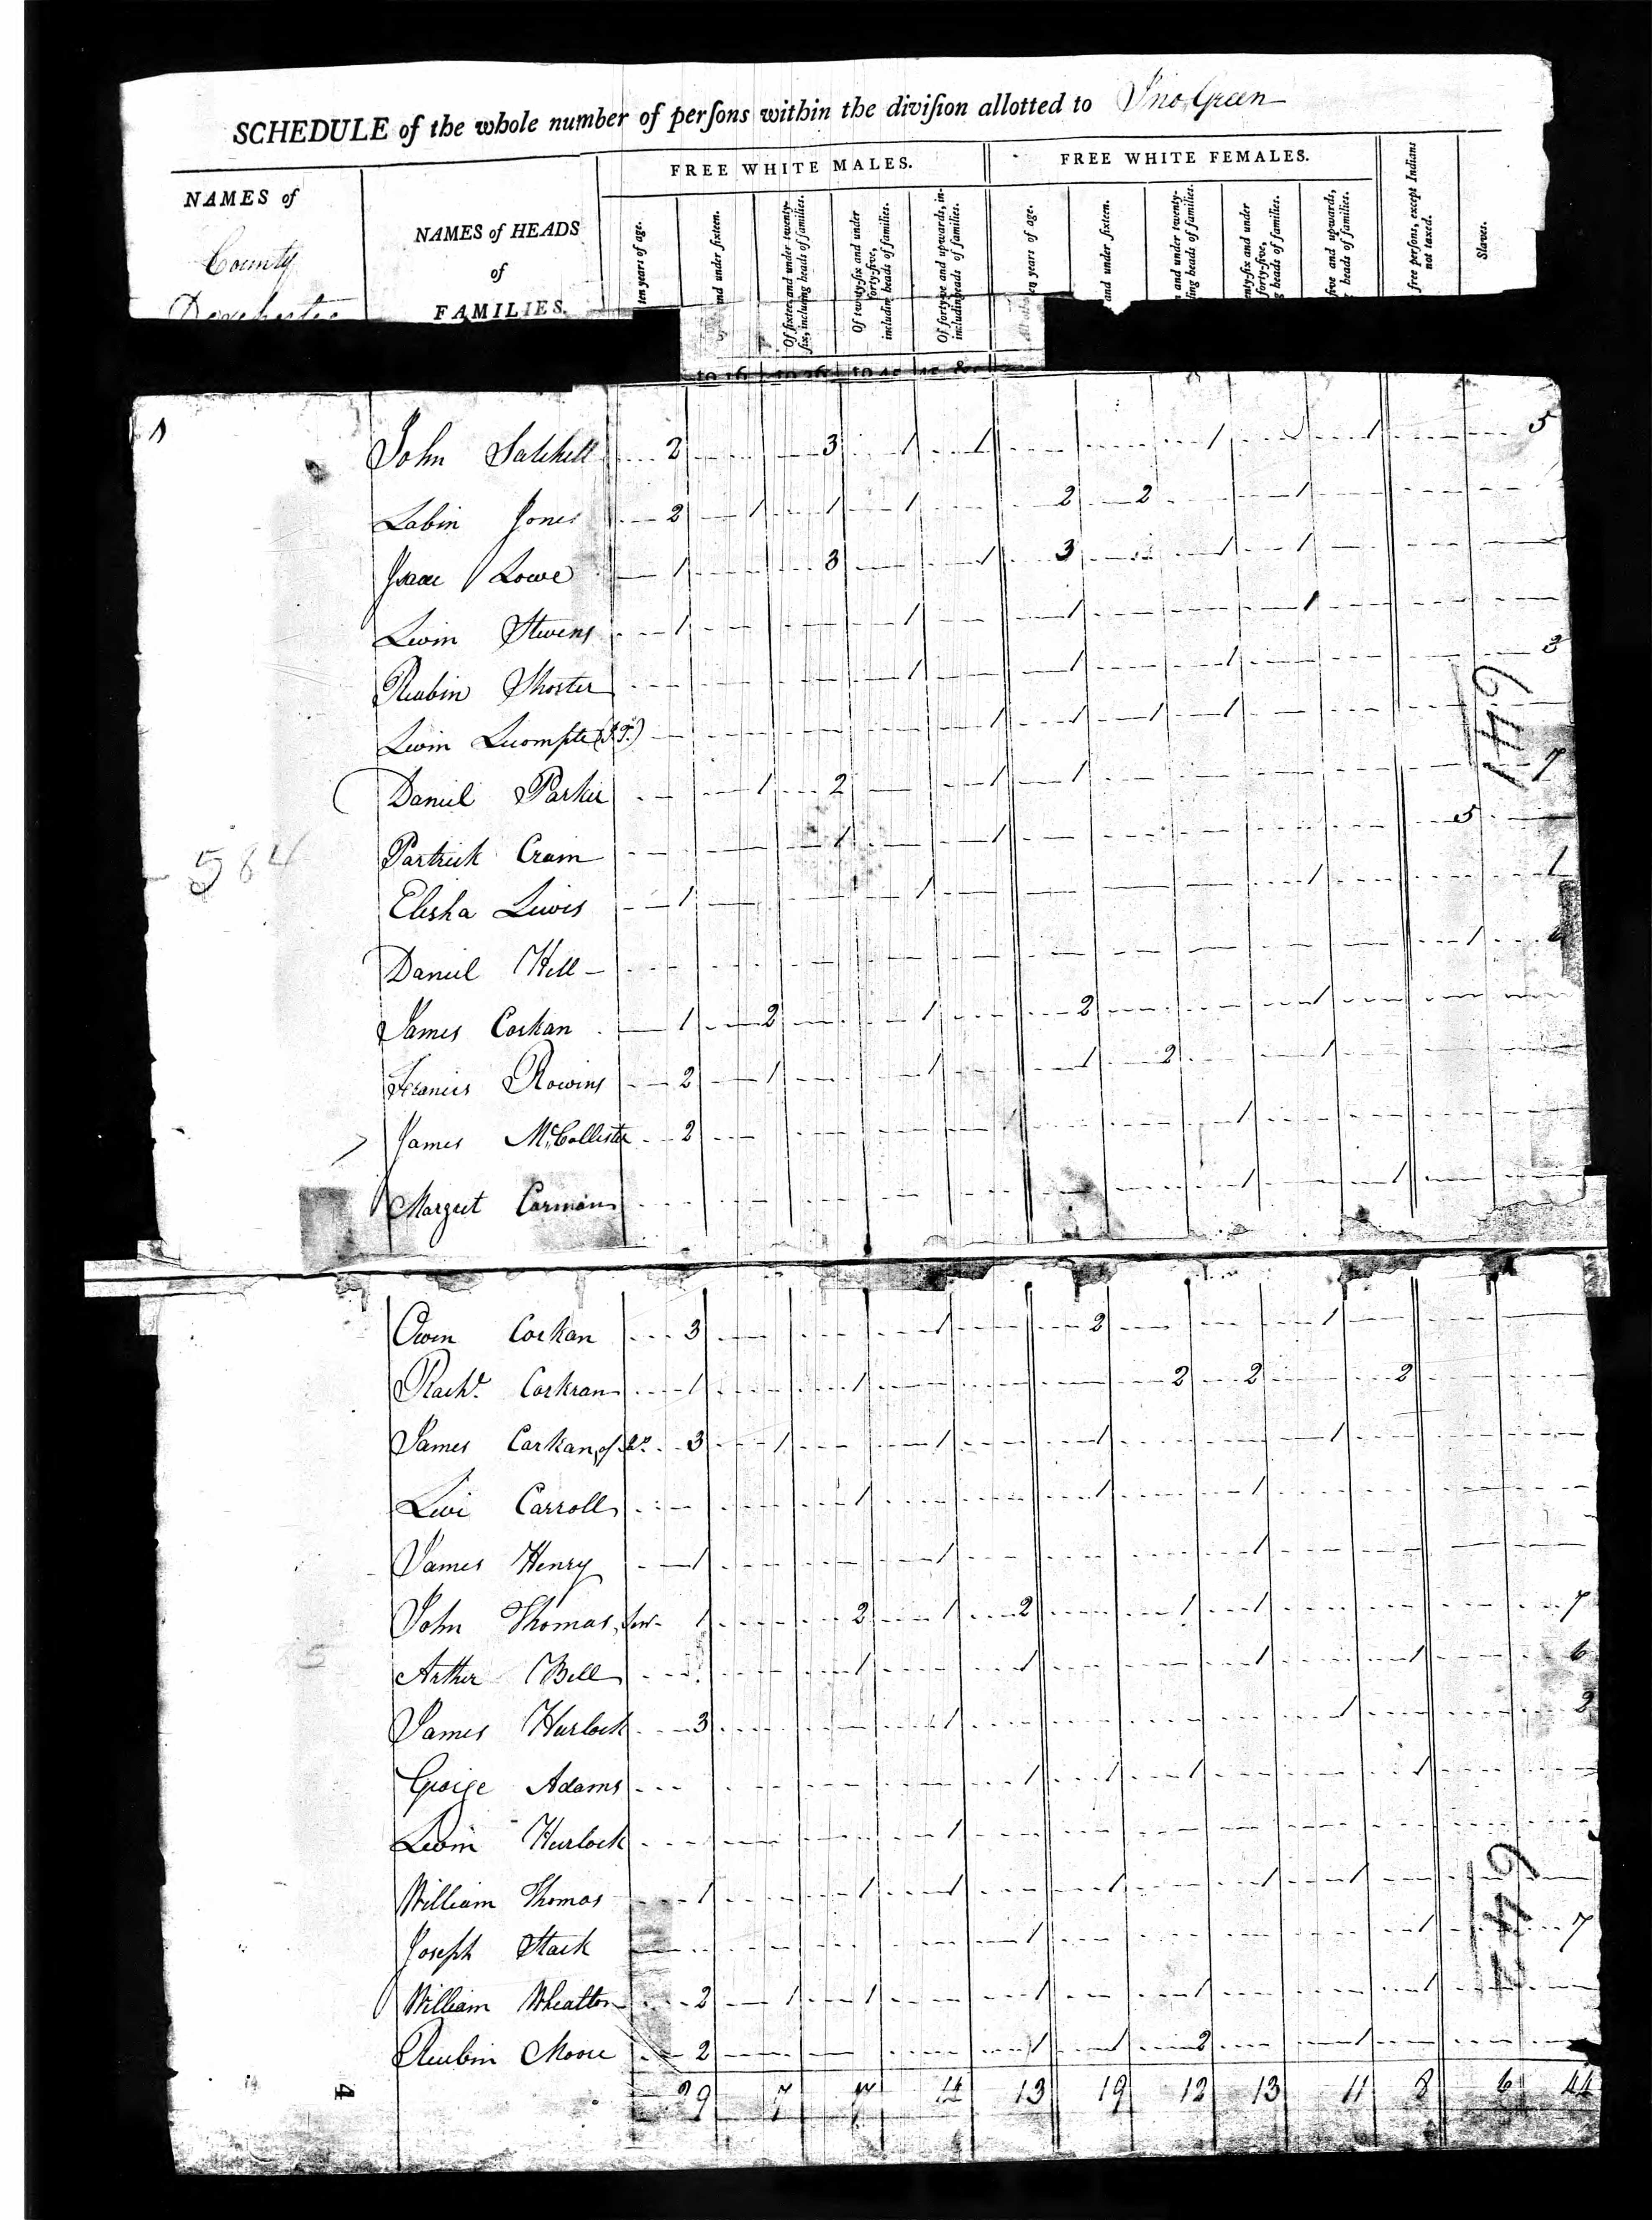 SCHEDULE of the whole number of perſons within the diviſion allotted to Jno. Green
FREE WHITE MALES. FREE WHITE FEMALES.
NAMES of
County
Dorchester
NAMES of HEADS
of
FAMILIES.
ten years of age.
nd under ſixteen.
Of ſixteen and under twenty-ſix, including heads of families.
Of twenty-ſix and under forty-five, including heads of families.
Of forty-five and upwards, including heads of families.
en years of age.
and under ſixteen.
and under twenty-ling heads of families.
nty-ſix and under forty-five, g heads of families.
five and upwards, heads of families.
free perſons, except Indians not taxed.
Slaves.
John Satchell 2 3 1 1 1 1 5
Labin Jones 2 1 1 1 2 2 1
Isaac Lowe 1 3 1 3 1 1
Levin Stevens 1 1 1 1
Reubin Shorter 1 1 1 3
Levin Lecompte 1 1 1 1
Daniel Parker 1 2 1 1 7
Partrick Crain 1 1 5
Elisha Lewis 1 1 1 1
Daniel Hill 1
James Corkan 1 2 1 2 1
Francis Rowins 2 1 1 1 2 1
James McCollister 2 1 1
Margret Carman 1 1
149
584
Owen Corkan 3 1 2 1
Rachl. Corkran 1 1 2 2 2
James Carkan of 3 1 1 1 1
Levi Carroll 1 1 1
James Henry 1 1 1
John Thomas, Senr 1 2 1 2 1 1 7
Arther Bell 1 1 1 1 6
James Hurlock 3 1 1 2
George Adams 1 1 1 1
Levin Hurlock 1
William Thomas 1 1 1 1 1 1
Joseph Stack 1 1 7
William Wheatton 2 1 1 1 1 1
Reubin Moore 2 1 1 2 1
29 7 14 13 19 12 13 11 8 6 44